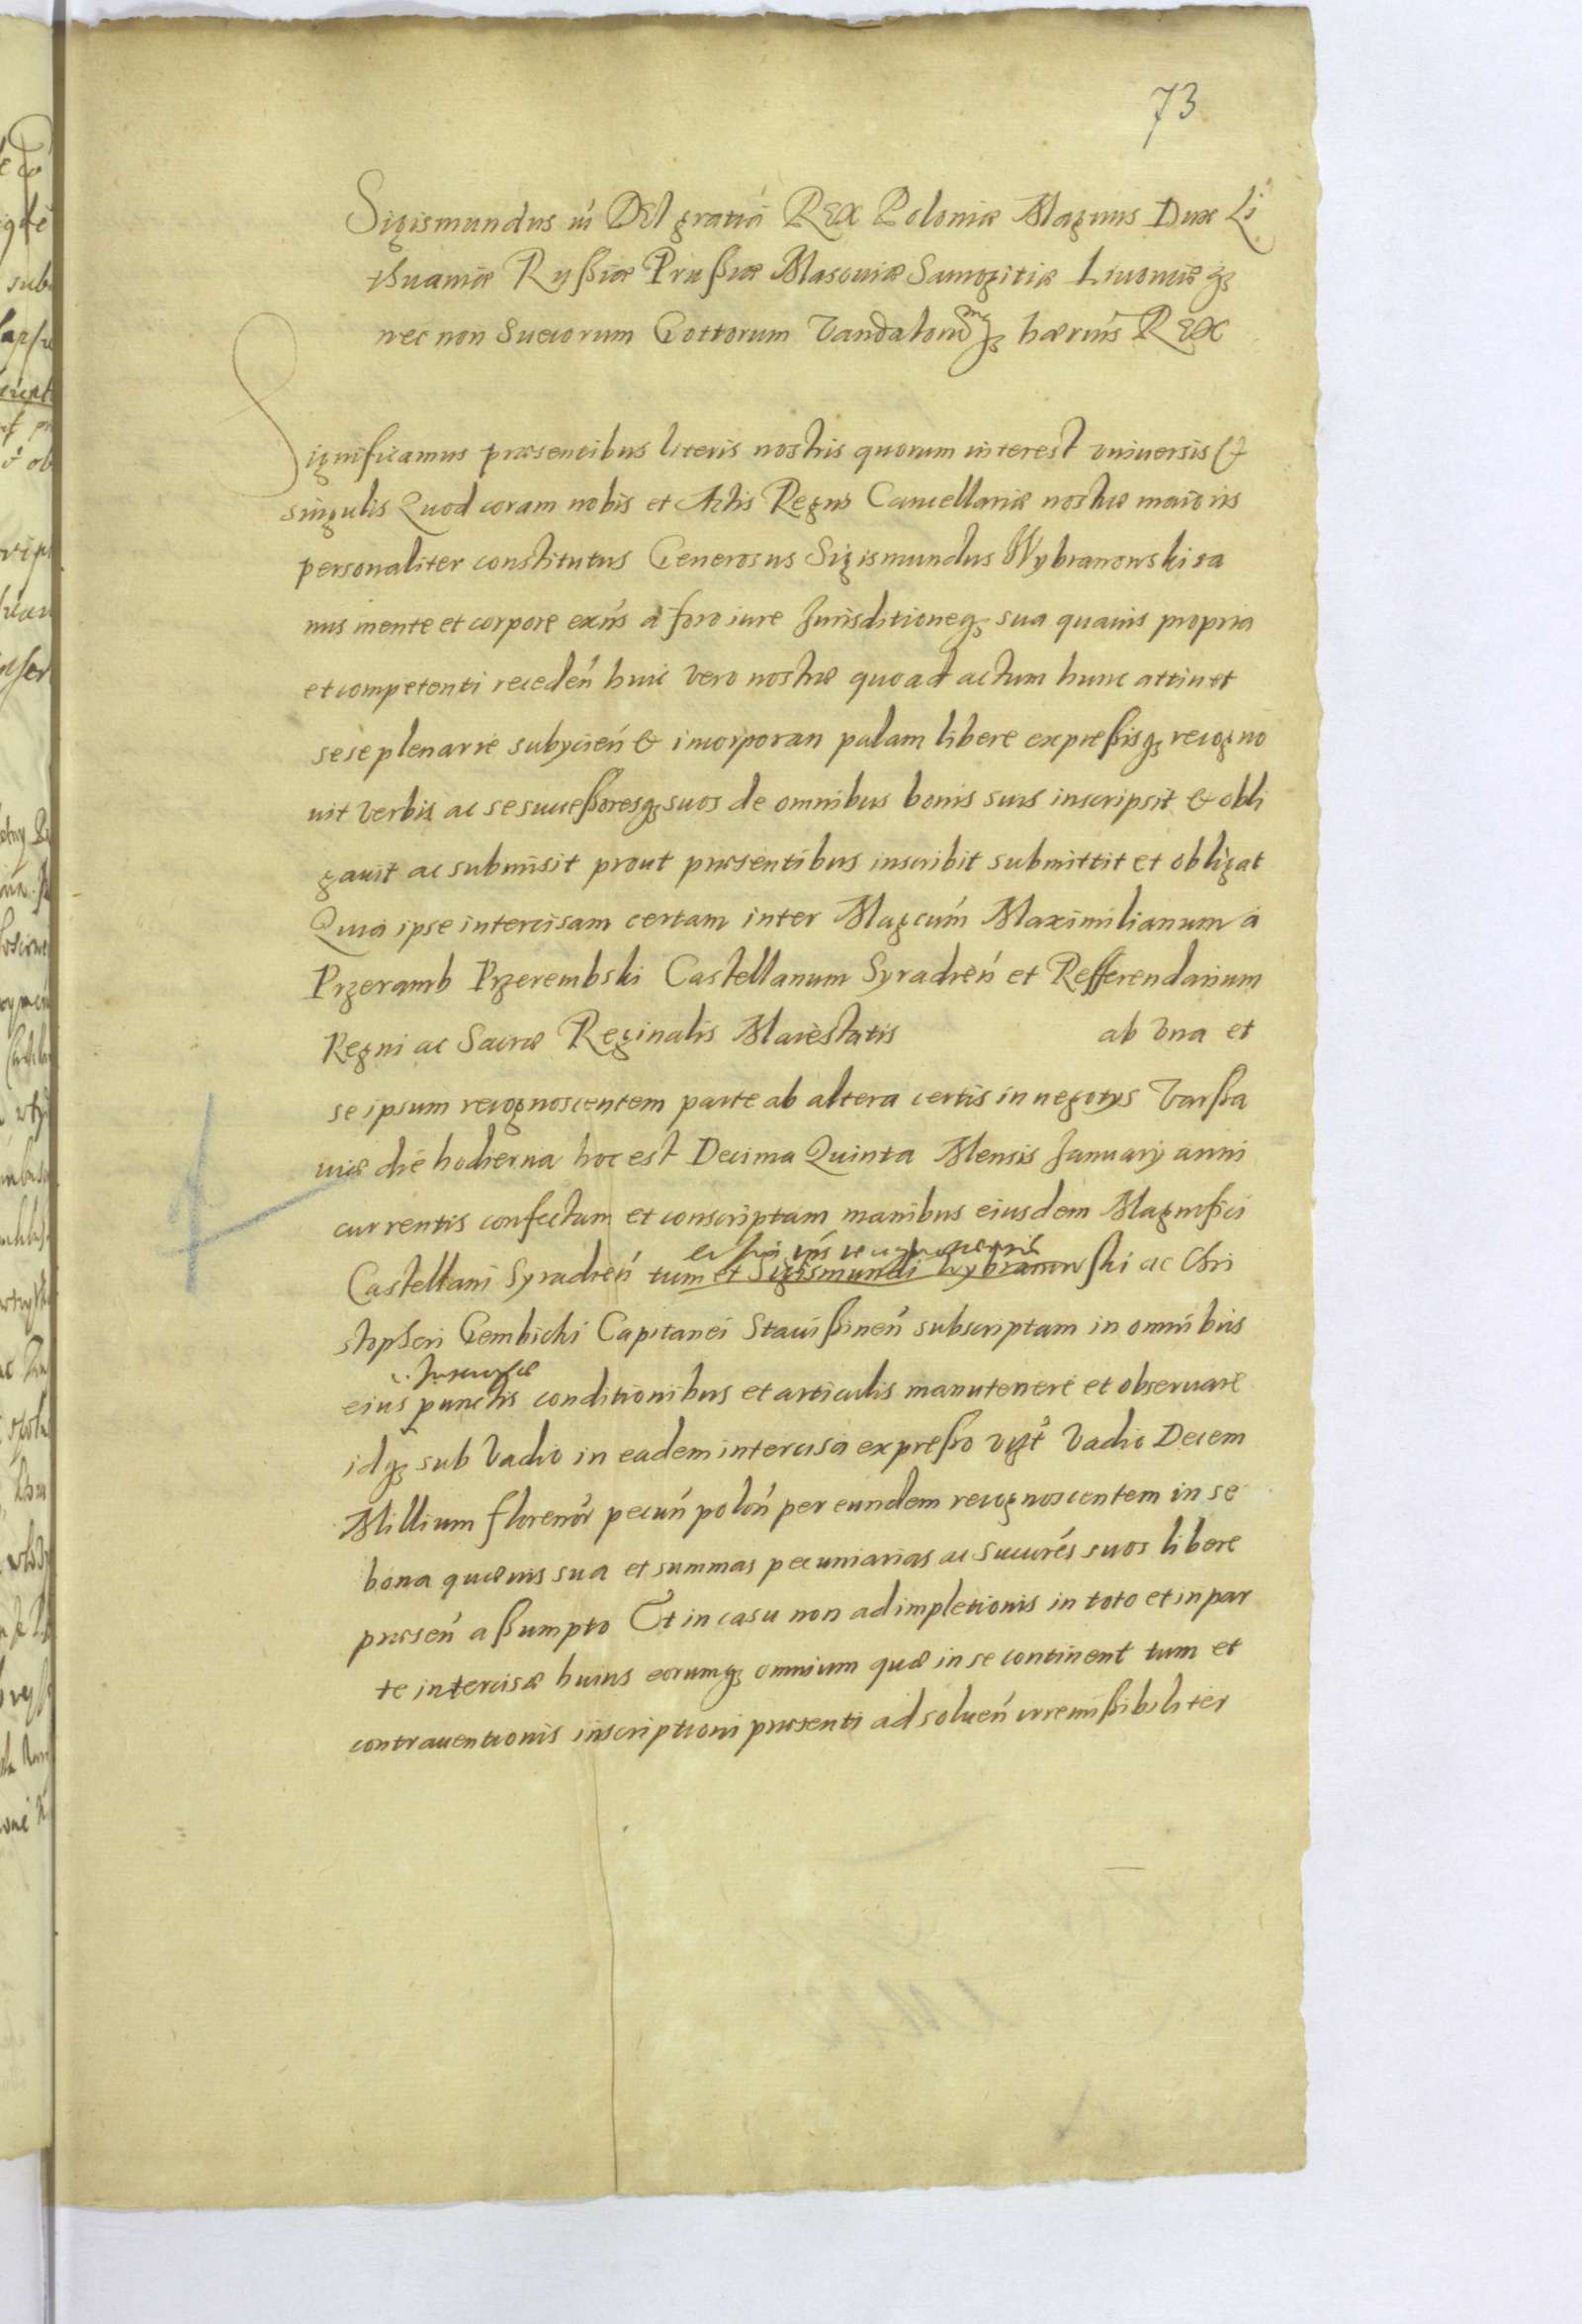 73
Sigismundus iii DEI gratiá REX Poloniæ Magnus Dux Li
thuaniæ Russiæ Prussiæ Masouiæ Samogitiæ Liuoniæq;
nec non Sueuorum Gottorum Vandalorumq; hæriús REX
Significamus præsentibus literis nostris quorum interest vniuersis &
singulis Quod coram nobis et Actis Regni Cancellariæ nostræ maioris
personaliter constitutus Generosus Sigismundus Wybranowski sa
nus mente et corpore exn̄s à foro iure Jurisditioneq; sua quauis propria
et competenti receden̄ huic vero nostræ quoad actum hunc attinet
sese plenarie subycien̄ & incorporan palam libere expressisq; recogno
uit verbis ac se successoresq; suos de omnibus bonis suis inscripsit & obli
gauit ac submisit prout præsentibus inscribit submittit et obligat
Quia ipse intercisam certam inter Magcúm Maximilianum à
Przeramb Przerembski Castellanum Syradień et Refferendarium
Regni ac Sacræ Reginalis Maiestatis ab vna et
se ipsum recognoscentem parte ab altera certis in negotys Varssa
uiæ die hodierna hoc est Decima Quinta Mensis January anni
currentis confectam et conscriptam manibus eiusdem Magnifici
Castellani Syradień tum et Sigismundi Wybranowski ac Chri
stopheri Gembicki Capitanei Stauissineń subscriptam in omnibus
eius punctis conditionibus et articulis manutenere et obseruare
idq; sub Vadio in eadem intercisa expresso vigt Vadio Decem
Millium florenor̄ pecuń poloń per eundem recognoscentem in se
bona quæuis sua et summas pecuniarias ac Succrés suos libere
præseń assumpto Et in casu non adimpletionis in toto et in par
te intercisæ huius eorumq; omnium quæ in se continent tum et
contrauentionis inscriptioni præsenti ad solueń irremissibiliter